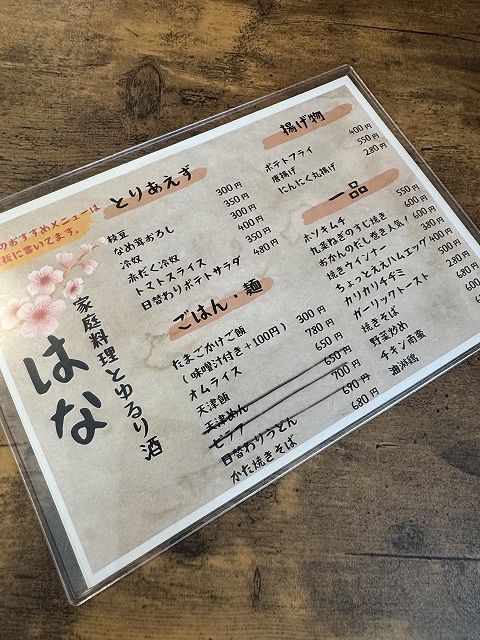 のおすすめメニューは
板に書いてます。
家庭料理とゆるり酒
はな
とりあえず
枝豆 300円
なめ茸おろし 350円
冷奴 300円
赤だく冷奴 400円
トマトスライス 350円
日替わりポテトサラダ 480円
ごはん・麺
たまごかけご飯 300円
(味噌汁付き+100円)
オムライス 780円
天津飯 650円
天津めん 650円
ピラフ 700円
日替わりうどん 690円
かた焼きそば 680円
揚げ物
ポテトフライ 400円
唐揚げ 550円
にんにく丸揚げ 280円
一品
ホソキムチ 550円
九条ねぎのすじ焼き 600円
おかんのだし巻き人気! 600円
焼きウインナー 380円
ちょっとええハムエッグ 400円
カリカリチヂミ 500円
ガーリックトースト 280円
焼きそば 680円
野菜炒め
チキン南蛮
油淋鶏